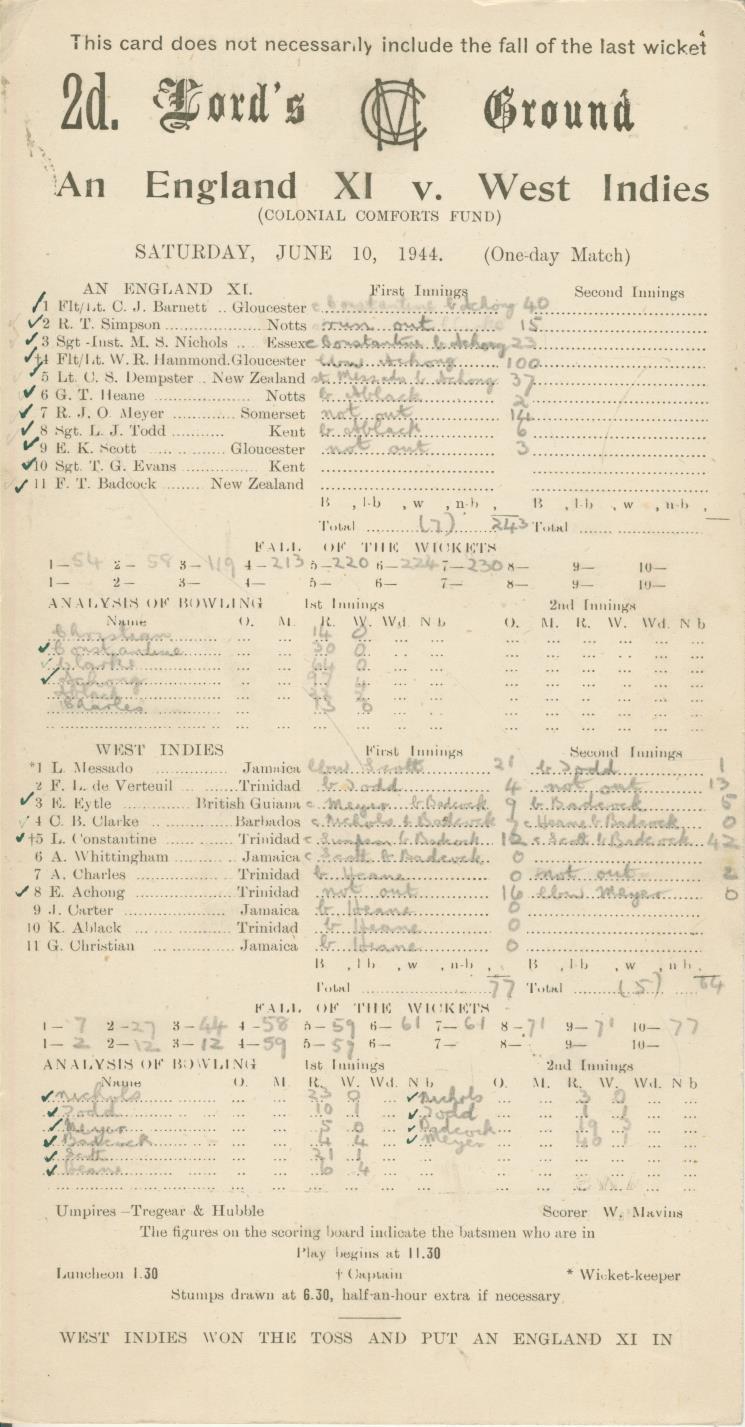 This card does not necessarily include the fall of the last wicket
2d. Lord's MCC Ground
An England XI v. West Indies
(COLONIAL COMFORTS FUND)
SATURDAY, JUNE 10, 1944. (One-day Match)
AN ENGLAND XI. First Innings Second Innings
1 Flt/Lt. C. J. Barnett .. Gloucester c Constantine b Achong 40
2 R. T. Simpson Notts run out 15
3 Sgt-Inst. M. S. Nichols .. Essex c Constantine b Achong 23
†4 Flt/Lt. W. R. Hammond. Gloucester lbw Achong 100
5 Lt. C. S. Dempster .. New Zealand st Messado b Achong 37
6 G. T. Heane Notts b Ablack 2
7 R. J. O. Meyer Somerset not out 14
8 Sgt. L. J. Todd Kent b Ablack 6
9 E. K. Scott Gloucester not out 3
10 Sgt. T. G. Evans Kent
11 F. T. Badcock New Zealand
B , l-b , w , n-b , B , l-b , w , n-b ,
Total (7) 243 Total
FALL OF THE WICKETS
1—54 2—58 3—119 4—213 5—220 6—224 7—230 8— 9— 10—
1— 2— 3— 4— 5— 6— 7— 8— 9— 10—
ANALYSIS OF BOWLING 1st Innings 2nd Innings
Name O. M. R. W. Wd. N b O. M. R. W. Wd. N b
Christian 14 0
Constantine 30 0
Clarke 64 0
Achong 97 4
Ablack 2
Charles 13 0
WEST INDIES First Innings Second Innings
*1 L. Messado Jamaica lbw Scott 21 b Todd 1
2 F. L. de Verteuil Trinidad b Todd 4 not out 13
3 E. Eytle British Guiana c Meyer b Badcock 9 b Badcock 5
4 C. B. Clarke Barbados c Nichols b Badcock c Heane b Badcock 0
†5 L. Constantine Trinidad c Simpson b Badcock 12 c Scott b Badcock 42
6 A. Whittingham Jamaica c Scott b Badcock 0
7 A. Charles Trinidad b Heane 0 not out 2
8 E. Achong Trinidad not out 16 lbw Meyer 0
9 J. Carter Jamaica b Heane 0
10 K. Ablack Trinidad b Heane 0
11 G. Christian Jamaica b Heane 0
B , l-b , w , n-b , B , l-b , w , n-b ,
Total 77 Total (5) 64
FALL OF THE WICKETS
1—7 2—27 3—44 4—58 5—59 6—61 7—61 8—71 9—71 10—77
1—2 2—12 3—12 4—59 5—59 6— 7— 8— 9— 10—
ANALYSIS OF BOWLING 1st Innings 2nd Innings
Name O. M. R. W. Wd. N b O. M. R. W. Wd. N b
Nichols 23 0 Nichols 3 0
Todd 10 1 Todd 1 1
Meyer 5 0 Badcock 19 3
Badcock 4 4 Meyer 40 1
Scott 21 1
Heane 6 4
Umpires—Tregear & Hubble Scorer W. Mavins
The figures on the scoring board indicate the batsmen who are in
Play begins at 11.30
Luncheon 1.30 † Captain * Wicket-keeper
Stumps drawn at 6.30, half-an-hour extra if necessary
WEST INDIES WON THE TOSS AND PUT AN ENGLAND XI IN